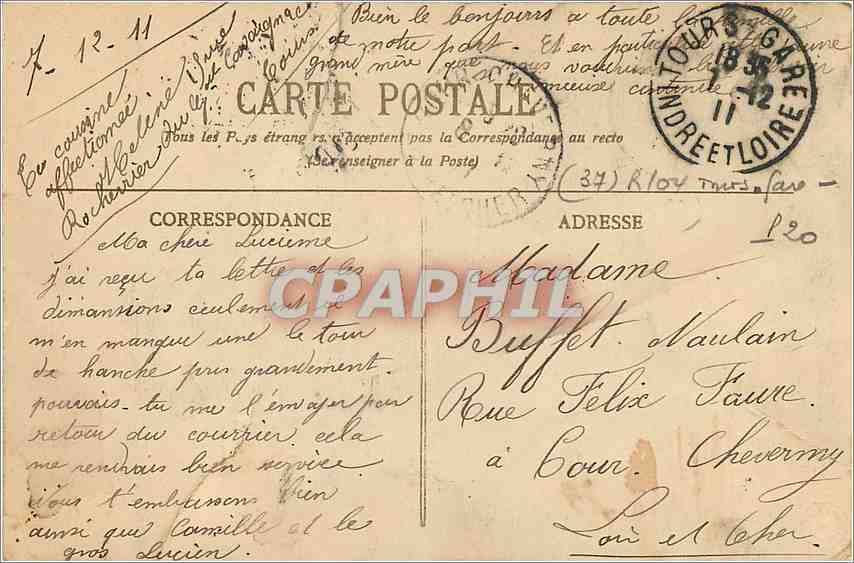 7 - 12 - 11
Bien le bonjours à toute la famille
de notre part. Et en particulier
grand mère que nous
CARTE POSTALE
Tous les Pays étrangers n'acceptent pas la Correspondance au recto
(Se renseigner à la Poste)
TOURS GARE
18 35
7 - 12
11
INDRE ET LOIRE
Ta cousine
affectionnée
Hélène
Rochevrier
Tours
(37) R104 Tours-Gare -
P20
CORRESPONDANCE
Ma chère Lucienne
j'ai reçu ta lettre et les
dimansions ceulement il
m'en manque une le tour
de hanche pris grandement.
pouvais-tu me l'emvoyer par
retour du courrier. cela
me rendrais bien service
Nous t'embrassons bien
ainsi que Camille et le
gros Lucien.
ADRESSE
Madame
Buffet. Naulain
Rue Félix Faure.
à Cour. Cheverny
Loir et Cher.
CPAPHIL